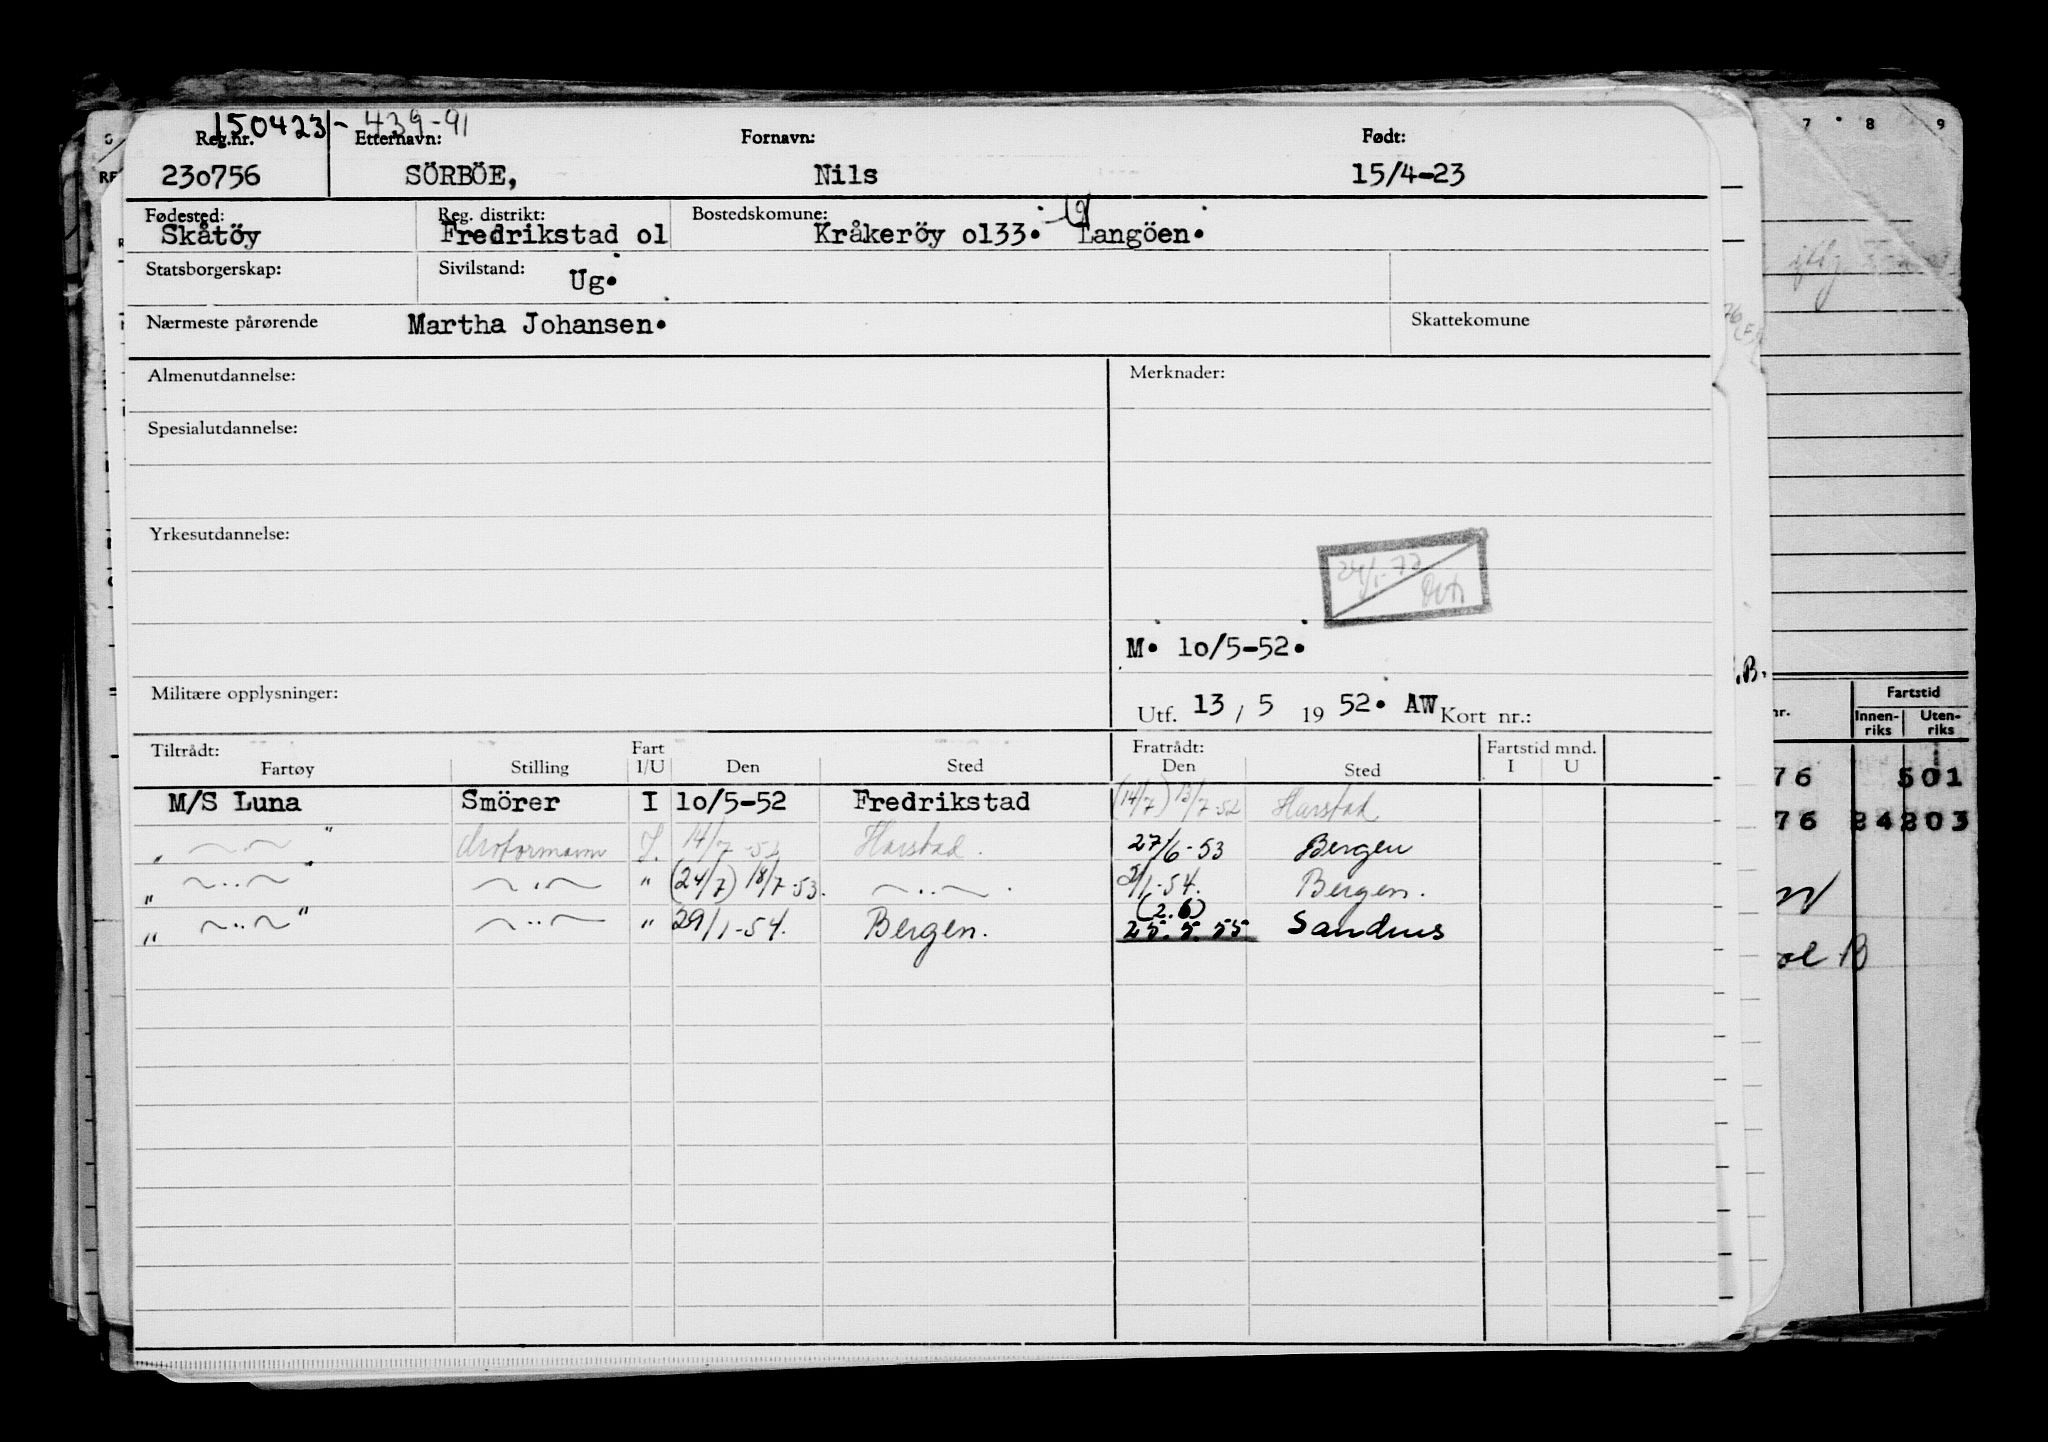 150423 - 439-91
Reg.nr. Etternavn: Fornavn: Født:
230756 SÖRBÖE, Nils 15/4-23
Fødested: Reg. distrikt: Bostedskomune:
Skåtöy Fredrikstad o1 Kråkeröy o133. Langöen.
Statsborgerskap: Sivilstand: Ug.
Nærmeste pårørende Martha Johansen. Skattekomune
Almenutdannelse: Merknader:
Spesialutdannelse:
Yrkesutdannelse:
24/1-77
M. 1o/5-52.
Militære opplysninger:
Utf. 13 / 5 19 52. AW Kort nr.:
Tiltrådt: Fart Fratrådt: Fartstid mnd.
Fartøy Stilling I/U Den Sted Den Sted I U
M/S Luna Smörer I 1o/5-52 Fredrikstad (14/7) 13/7-52 Harstad
" — " — " Motormann I. 14/7-52 Harstad. 27/6-53 Bergen
" —..— " —..— " (24/7) 18/7-53. —..—. 2/1-54. Bergen.
" —..— " —..— " 29/1-54. Bergen. (2.6) 25.5.55 Sandnes
7 8 9
.B.
nr. Fartstid
Innenriks Utenriks
76 501
76 24203